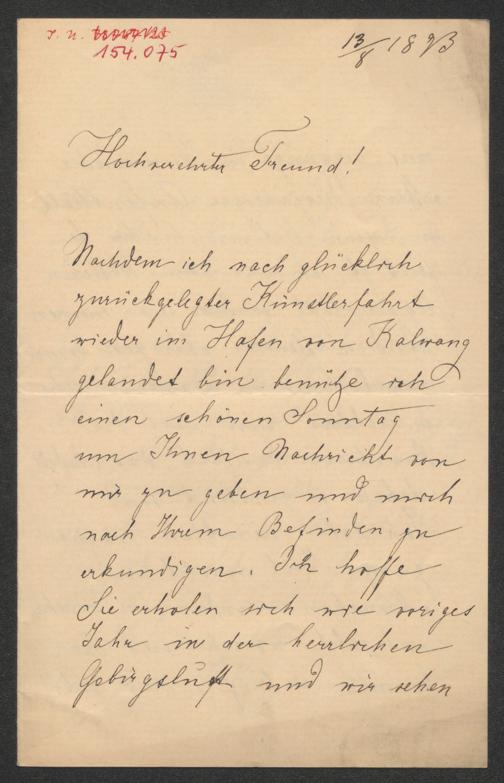 I. N.
154.075
13/8 1893
Hochverehrter Freund!
Nachdem ich nach glücklich
zurückgelegter Künstlerfahrt
wieder im Hafen von Kalwang
gelandet bin benütze ich
einen schönen Sonntag
um Ihnen Nachricht von
mir zu geben und mich
nach Ihrem Befinden zu
erkundigen. Ich hoffe
Sie erholen sich wie voriges
Jahr in der herrlichen
Gebirgsluft und wir sehen